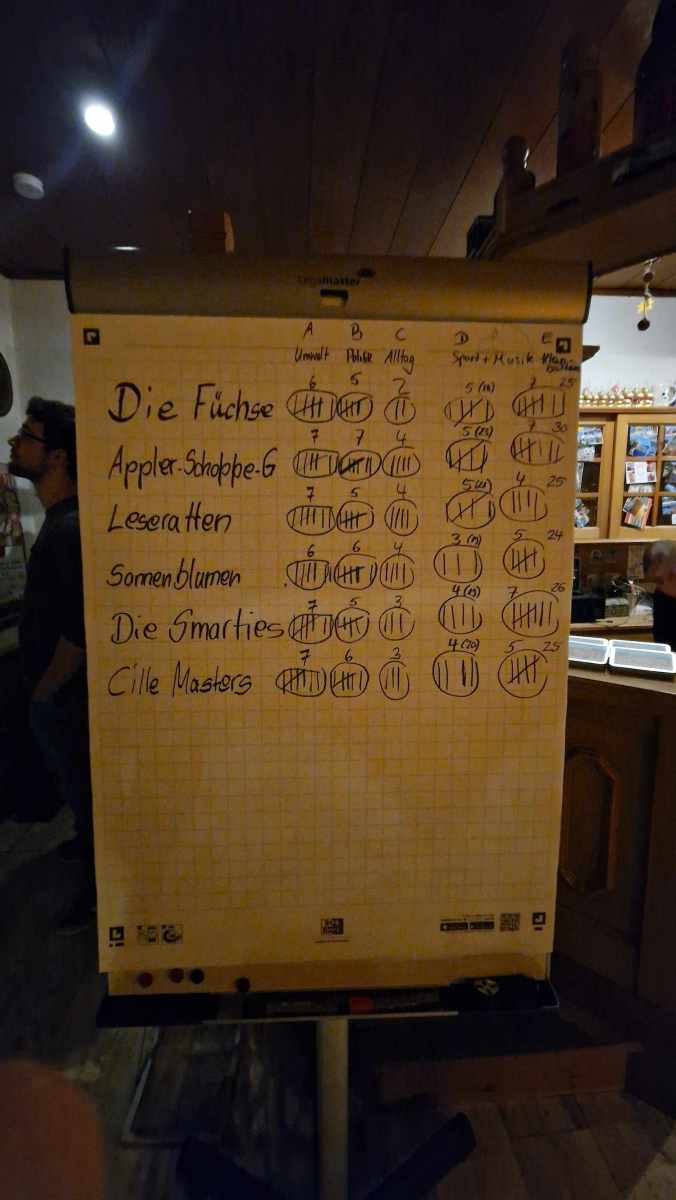 Legamaster
A B C D E
Umwelt Politik Alltag Sport + Musik
6 5 2 5 (18) 7 25
Die Füchse
7 7 4 5 (23) 7 30
Appler-Schoppe-G
7 5 4 5 (21) 4 25
Leseratten
6 6 4 3 5 24
Sonnenblumen
7 5 3 4 (19) 7 26
Die Smarties
7 6 3 4 (20) 5 25
Cille Masters